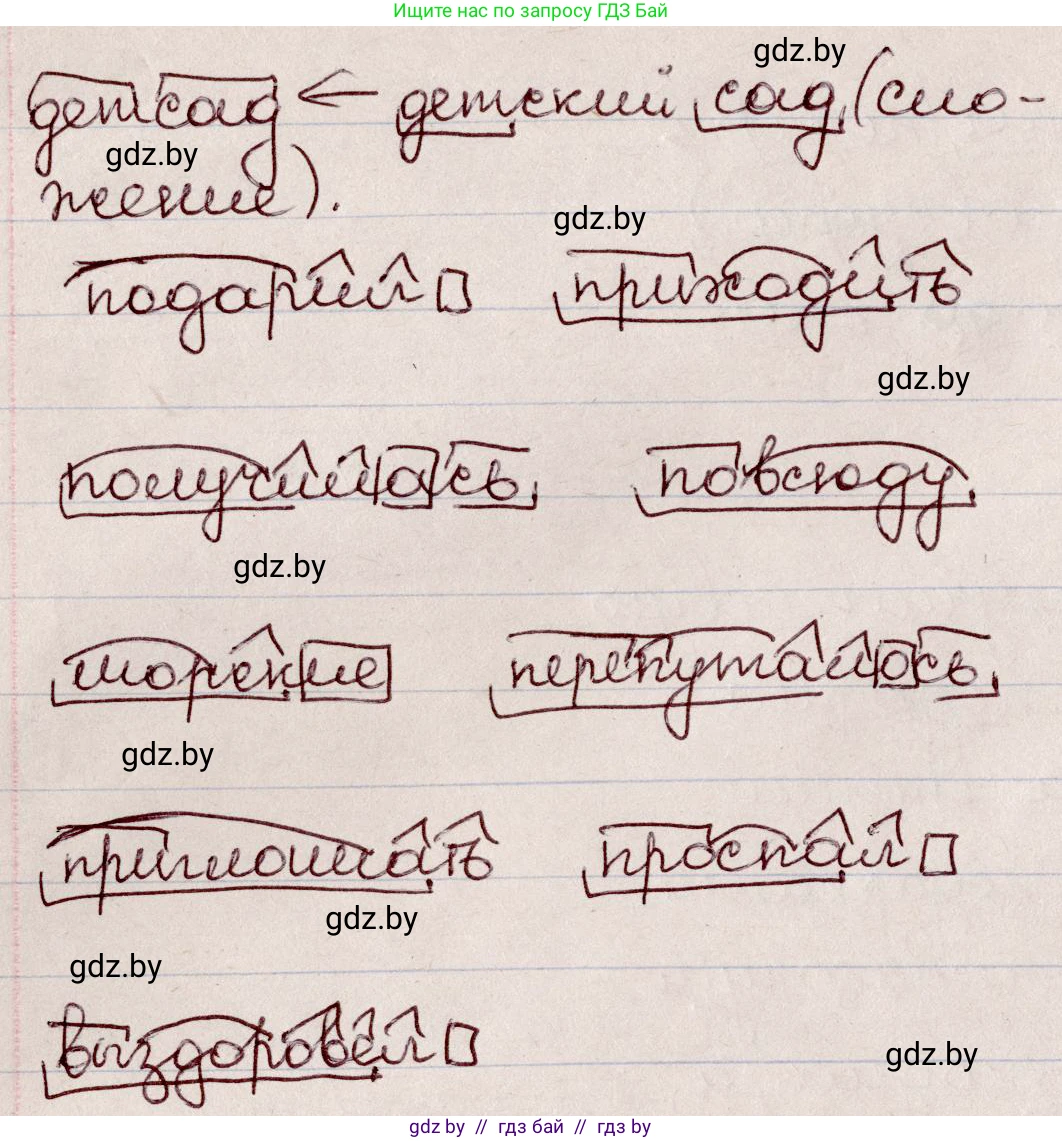 Ищите нас по запросу ГДЗ Бай
gdz.by
детсад ← детский сад (сло-
gdz.by
жение).
gdz.by
подарил приходить
gdz.by
получилась повсюду
gdz.by
морские перепуталось
gdz.by
приглашать проспал
gdz.by
gdz.by
выздоровел
gdz.by
gdz.by // гдз бай // гдз by